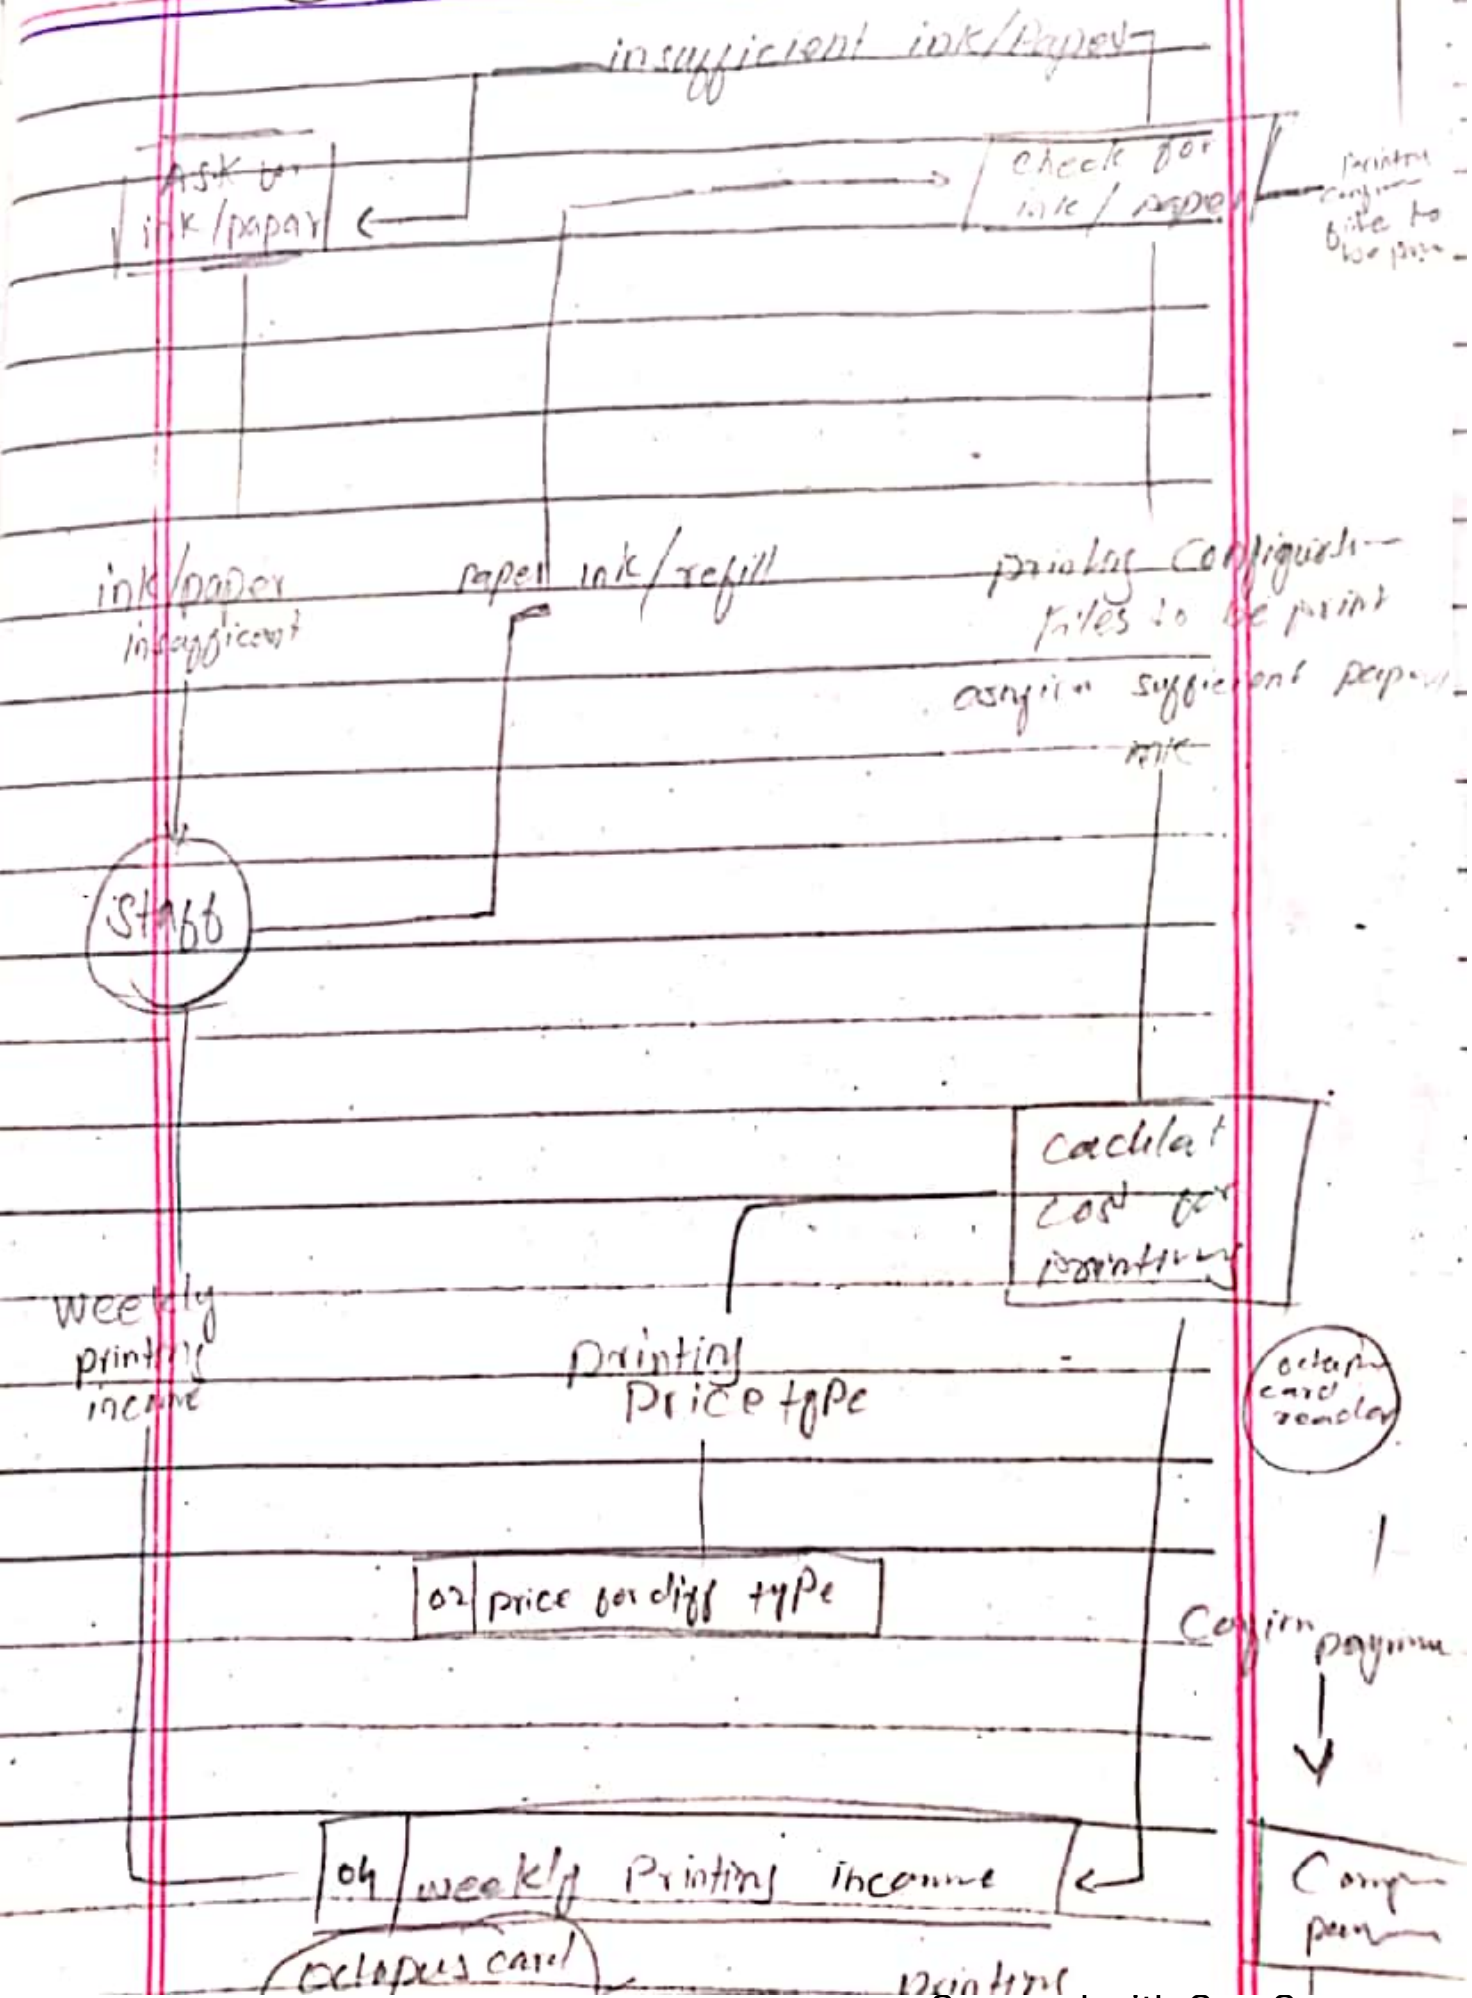 insufficient ink/Paper
Ask for
ink/papar
check for
ink / pape
file to
ink/paper
insafficent
paper ink/refill
printing Configurti
files to be print
sufficient paper
ink
Staff
Cacklat
cost for
printing
weekly
printing
income
printing
Price type
card
reador
02 price for diff type
04 weekly Printing incomne
Octopus card
printing